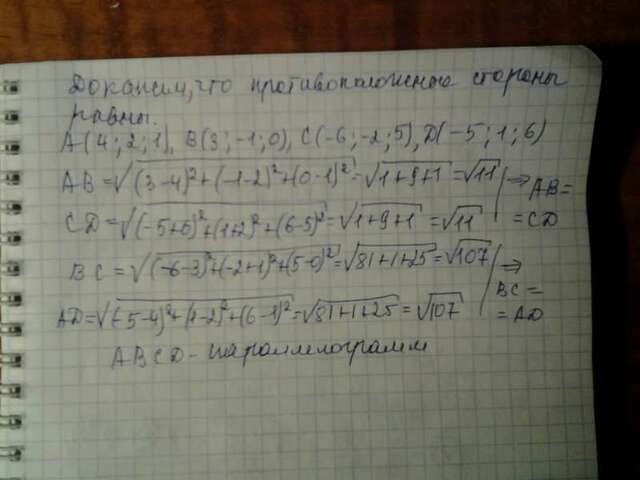 Докажем, что противоположные стороны
равны.
A(4; 2; 1), B(3; -1; 0), C(-6; -2; 5), D(-5; 1; 6)
AB = √(3-4)²+(-1-2)²+(0-1)² = √1+9+1 = √11 ⇒ AB =
CD = √(-5+6)²+(1+2)²+(6-5)² = √1+9+1 = √11 = CD
BC = √(-6-3)²+(-2+1)²+(5-0)² = √81+1+25 = √107 ⇒ BC =
AD = √(-5-4)²+(1-2)²+(6-1)² = √81+1+25 = √107 = AD
ABCD - параллелограмм